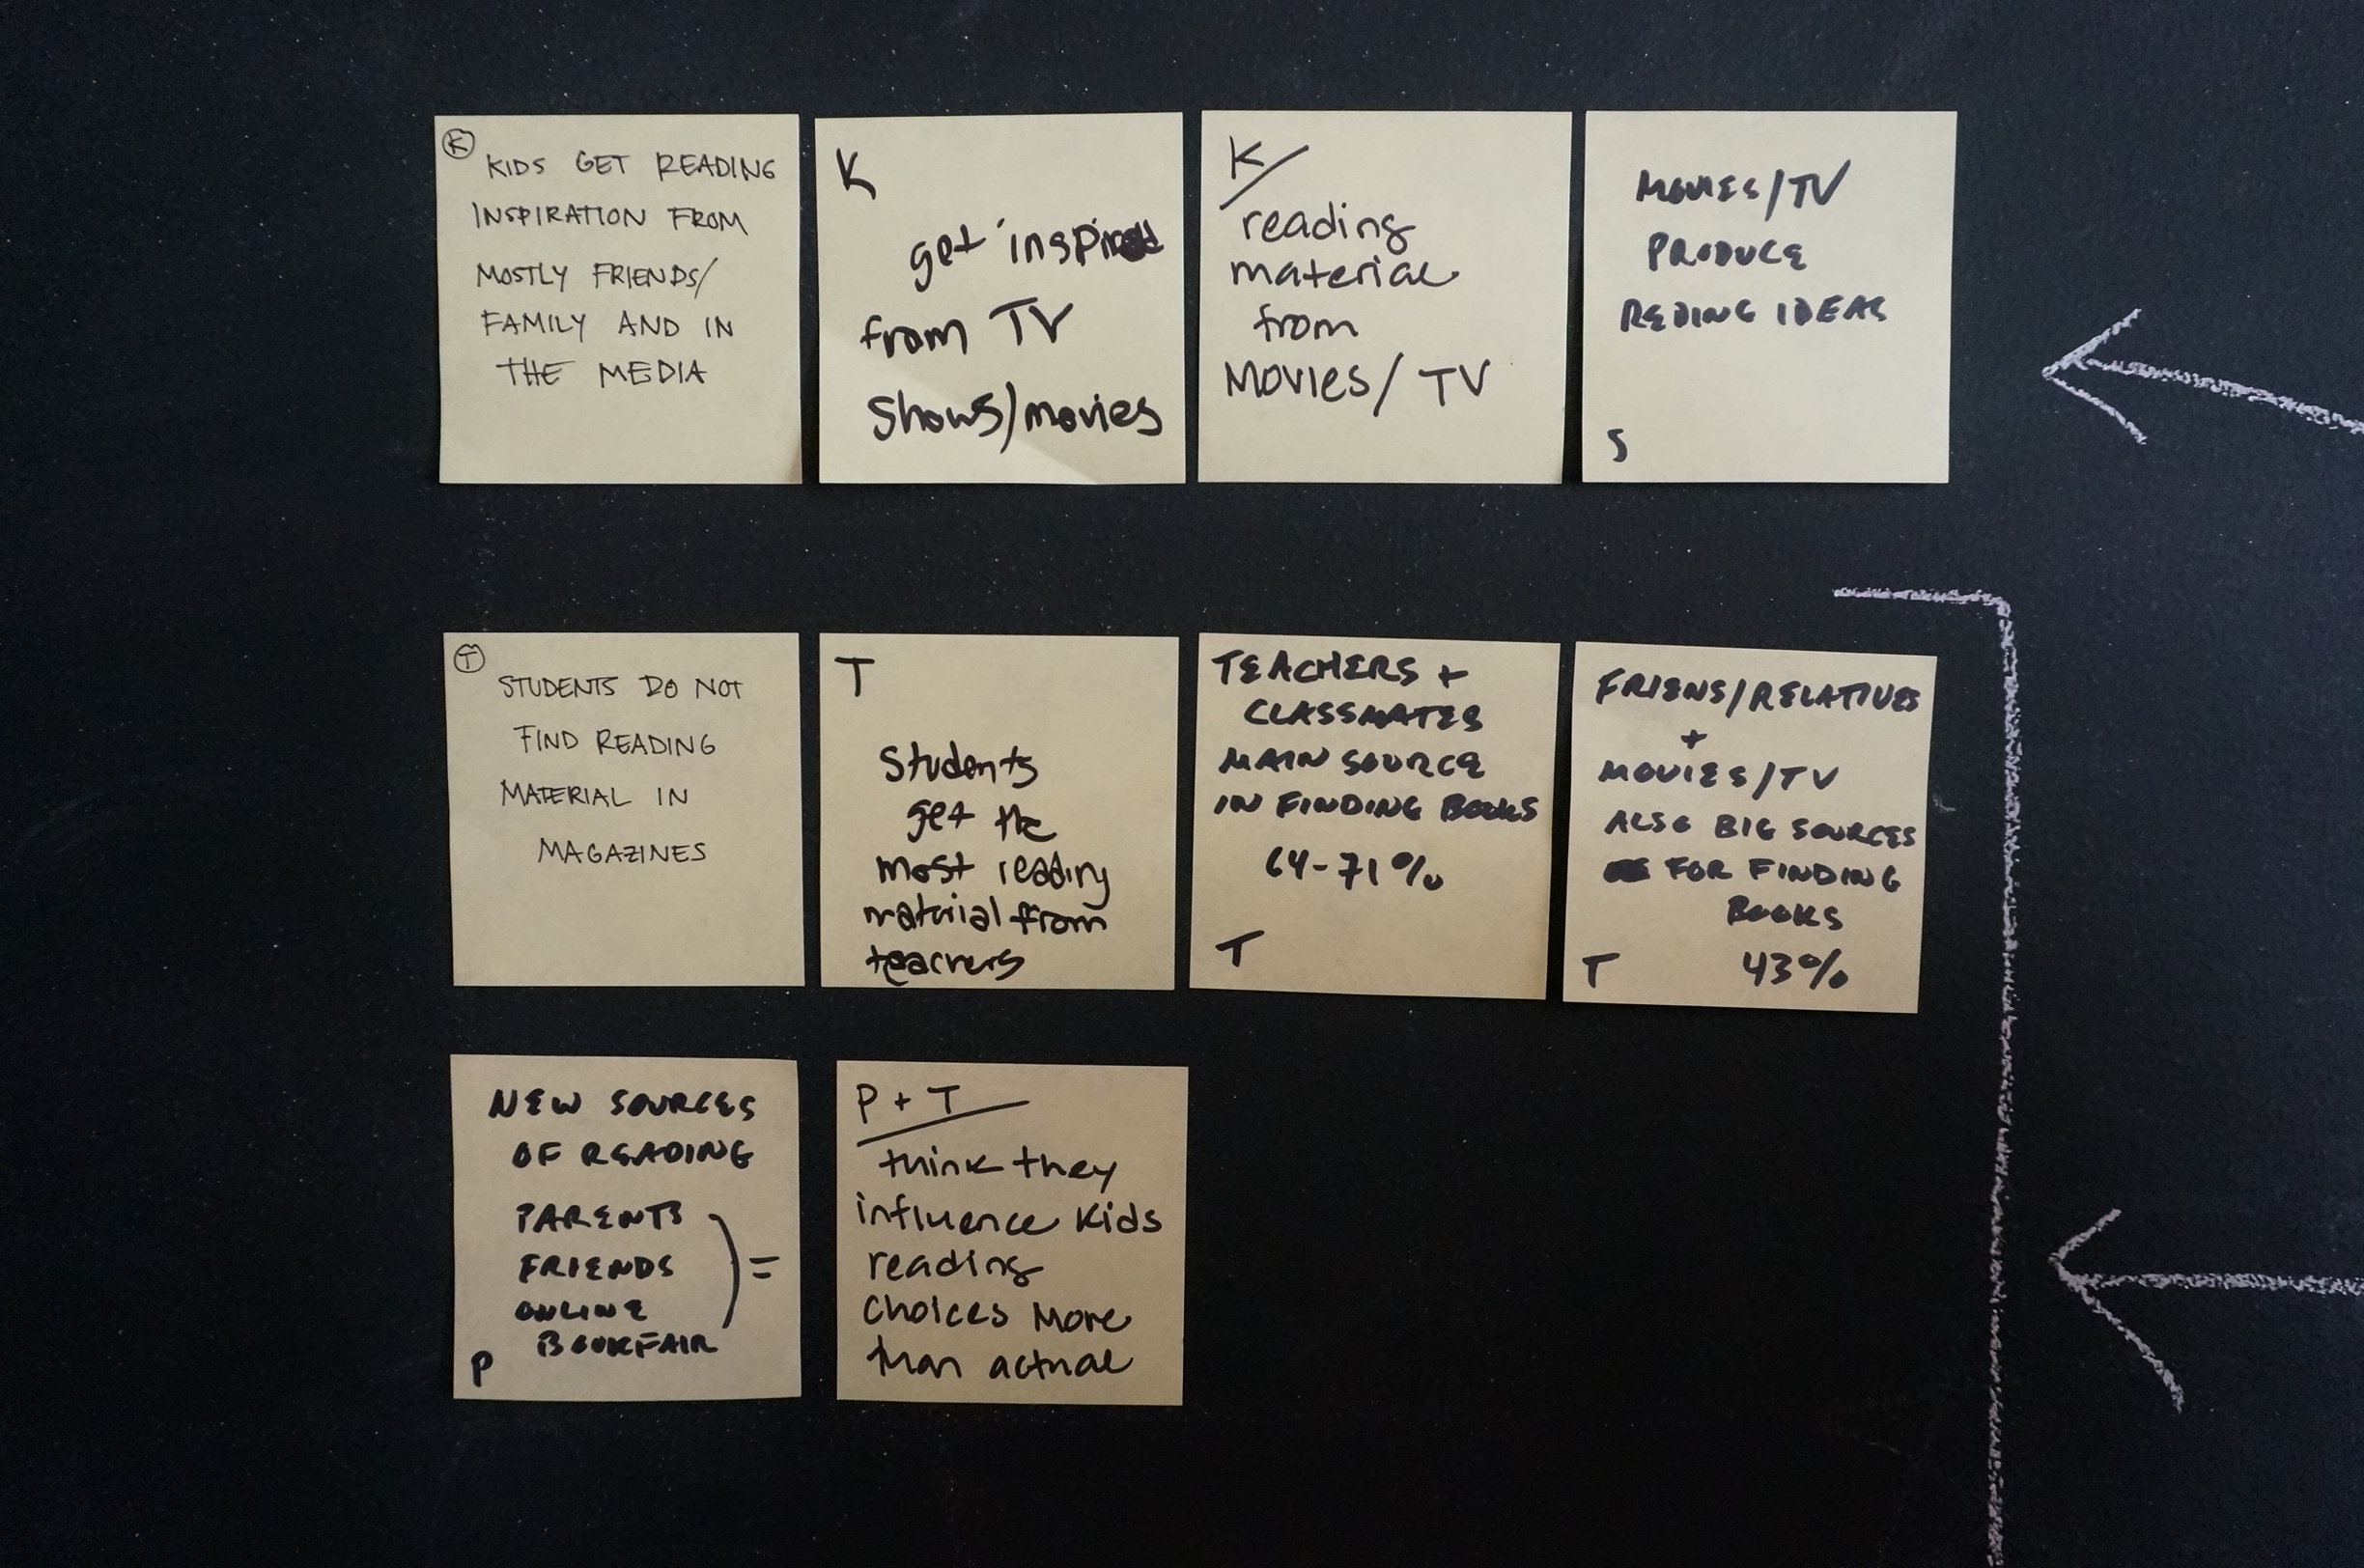 K
KIDS GET READING
INSPIRATION FROM
MOSTLY FRIENDS/
FAMILY AND IN
THE MEDIA
K
get inspired
from TV
Shows/movies
K/
reading
material
from
Movies/TV
MOVIES/TV
PRODUCE
REDING IDEAS
S
T
STUDENTS DO NOT
FIND READING
MATERIAL IN
MAGAZINES
T
Students
get the
most reading
material from
teachers
TEACHERS +
CLASSMATES
MAIN SOURCE
IN FINDING BOOKS
64-71%
T
FRIENS/RELATIVES
+
MOVIES/TV
ALSO BIG SOURCES
FOR FINDING
BOOKS
T 43%
NEW SOURCES
OF READING
PARENTS
FRIENDS ) =
ONLINE
BOOKFAIR
P
P + T
think they
influence kids
reading
choices more
than actual